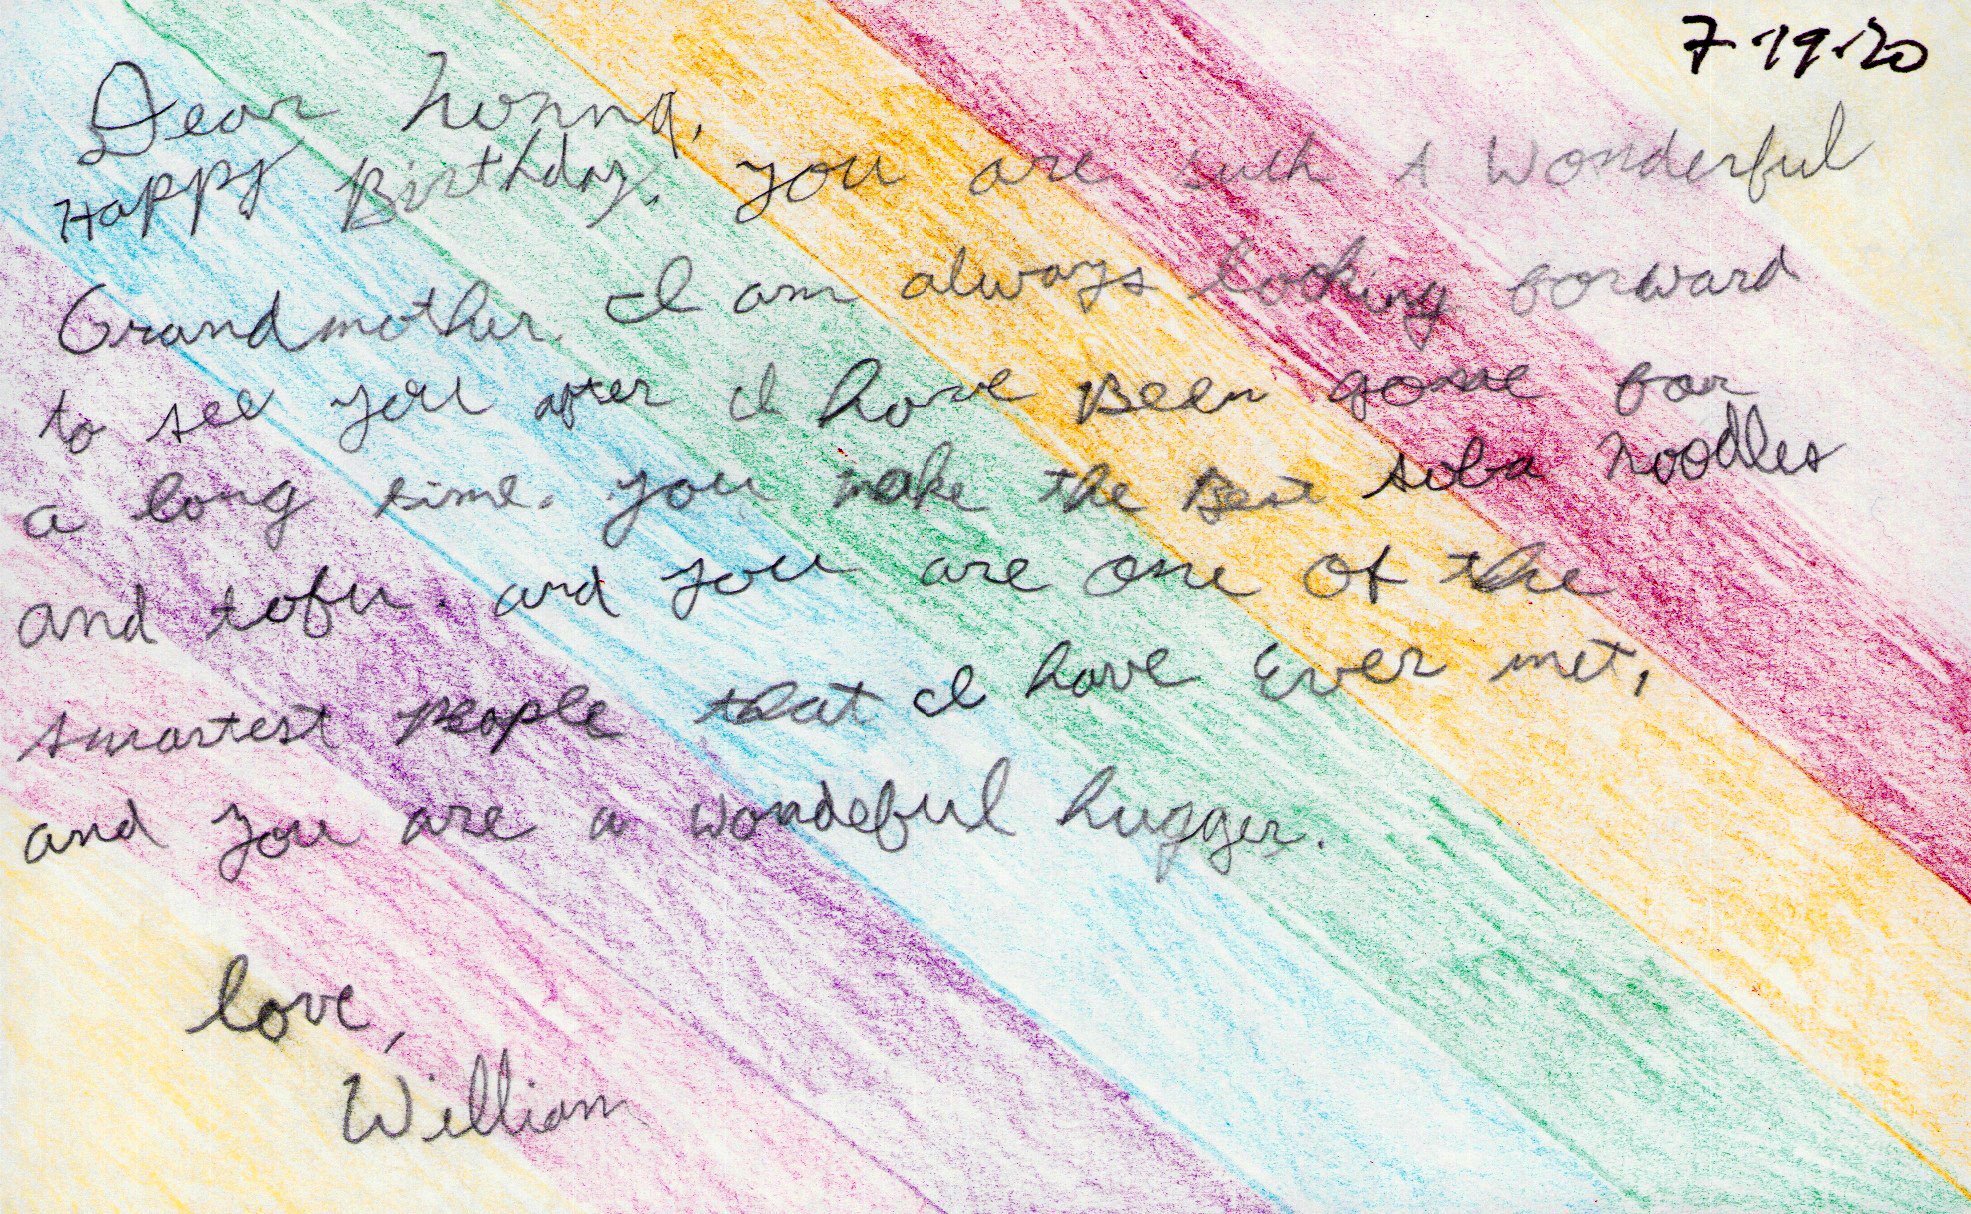 7-19-20
Dear Nonna,
Happy Birthday. you are such A Wonderful
Grandmother. I am always looking forward
to see you after I have Been gone for
a long time. you make the Best soba noodles
and tofu. and you are one of the
smartest People that I have Ever met,
and you are a wondeful hugger.
love,
William